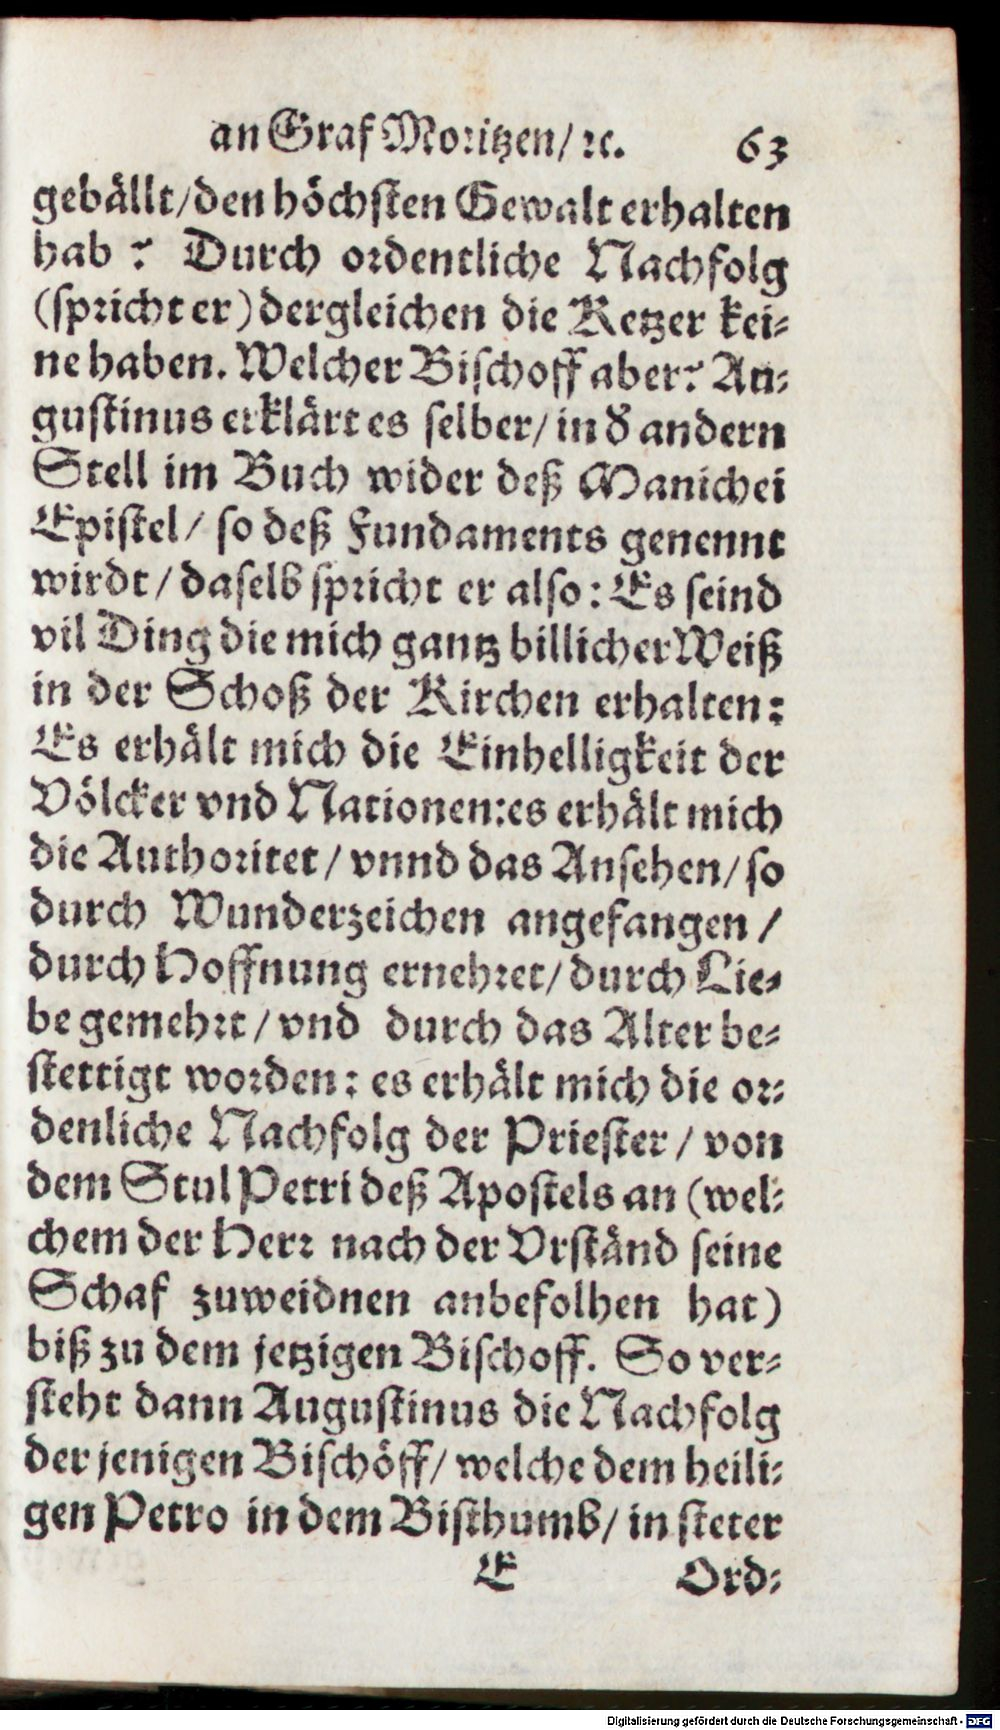 an Graf Moritzen/ ꝛc. 63
gebällt/den höchsten Gewalt erhalten
hab? Durch ordentliche Nachfolg
(spricht er) dergleichen die Ketzer kei-
ne haben. Welcher Bischoff aber? Au-
gustinus erklärt es selber/ in d̕ andern
Stell im Buch wider deß Manichei
Epistel/ so deß Fundaments genennt
wirdt/ daselb spricht er also: Es seind
vil Ding die mich gantz billicher Weiß
in der Schoß der Kirchen erhalten:
Es erhält mich die Einhelligkeit der
Völcker vnd Nationen: es erhält mich
die Authoritet/ vnnd das Ansehen/ so
durch Wunderzeichen angefangen/
durch Hoffnung ernehret/ durch Lie-
be gemehrt/ vnd durch das Alter be-
stettigt worden: es erhält mich die or-
denliche Nachfolg der Priester/ von
dem Stul Petri deß Apostels an (wel-
chem der Herr nach der Vrständ seine
Schaf zuweidnen anbefolhen hat)
biß zu dem jetzigen Bischoff. So ver-
steht dann Augustinus die Nachfolg
der jenigen Bischöff/ welche dem heili-
gen Petro in dem Bisthumb/ in steter
E Ord-
Digitalisierung gefördert durch die Deutsche Forschungsgemeinschaft - DFG